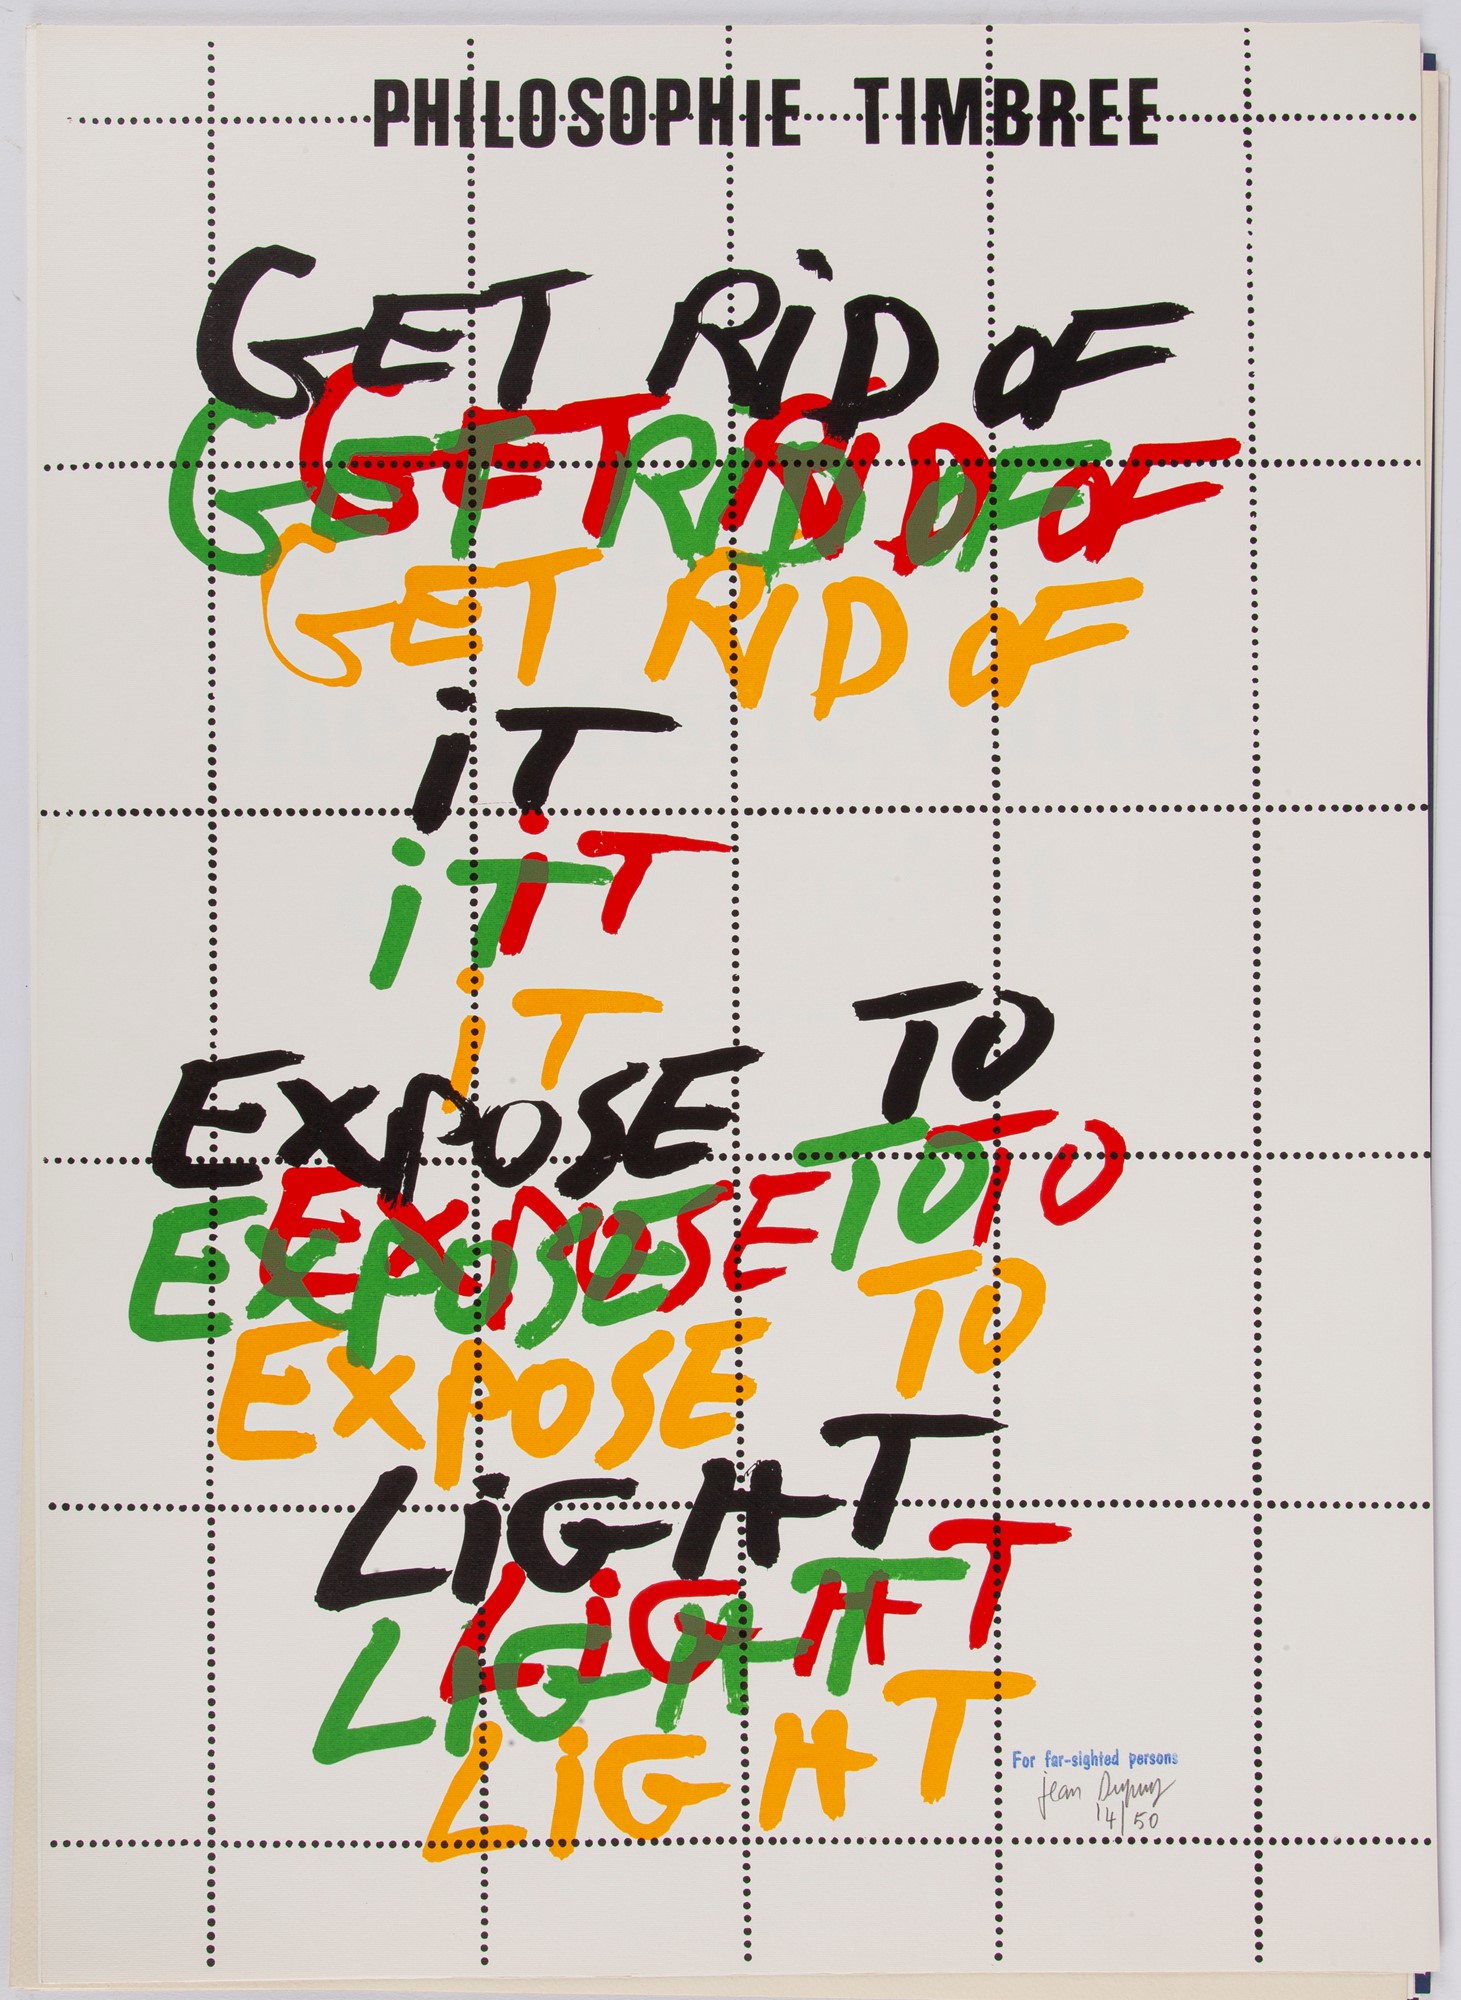 PHILOSOPHIE TIMBREE
GET RiD OF
GET RiD OF
GET RiD OF
GET RiD OF
iT
iT
iT
iT
TO
EXPOSE
TO
TO
EXPOSE
EXPOSE
TO
EXPOSE
LiGHT
LiGHT
LiGHT
LiGHT
For far-sighted persons
jean Dupuy
14/50